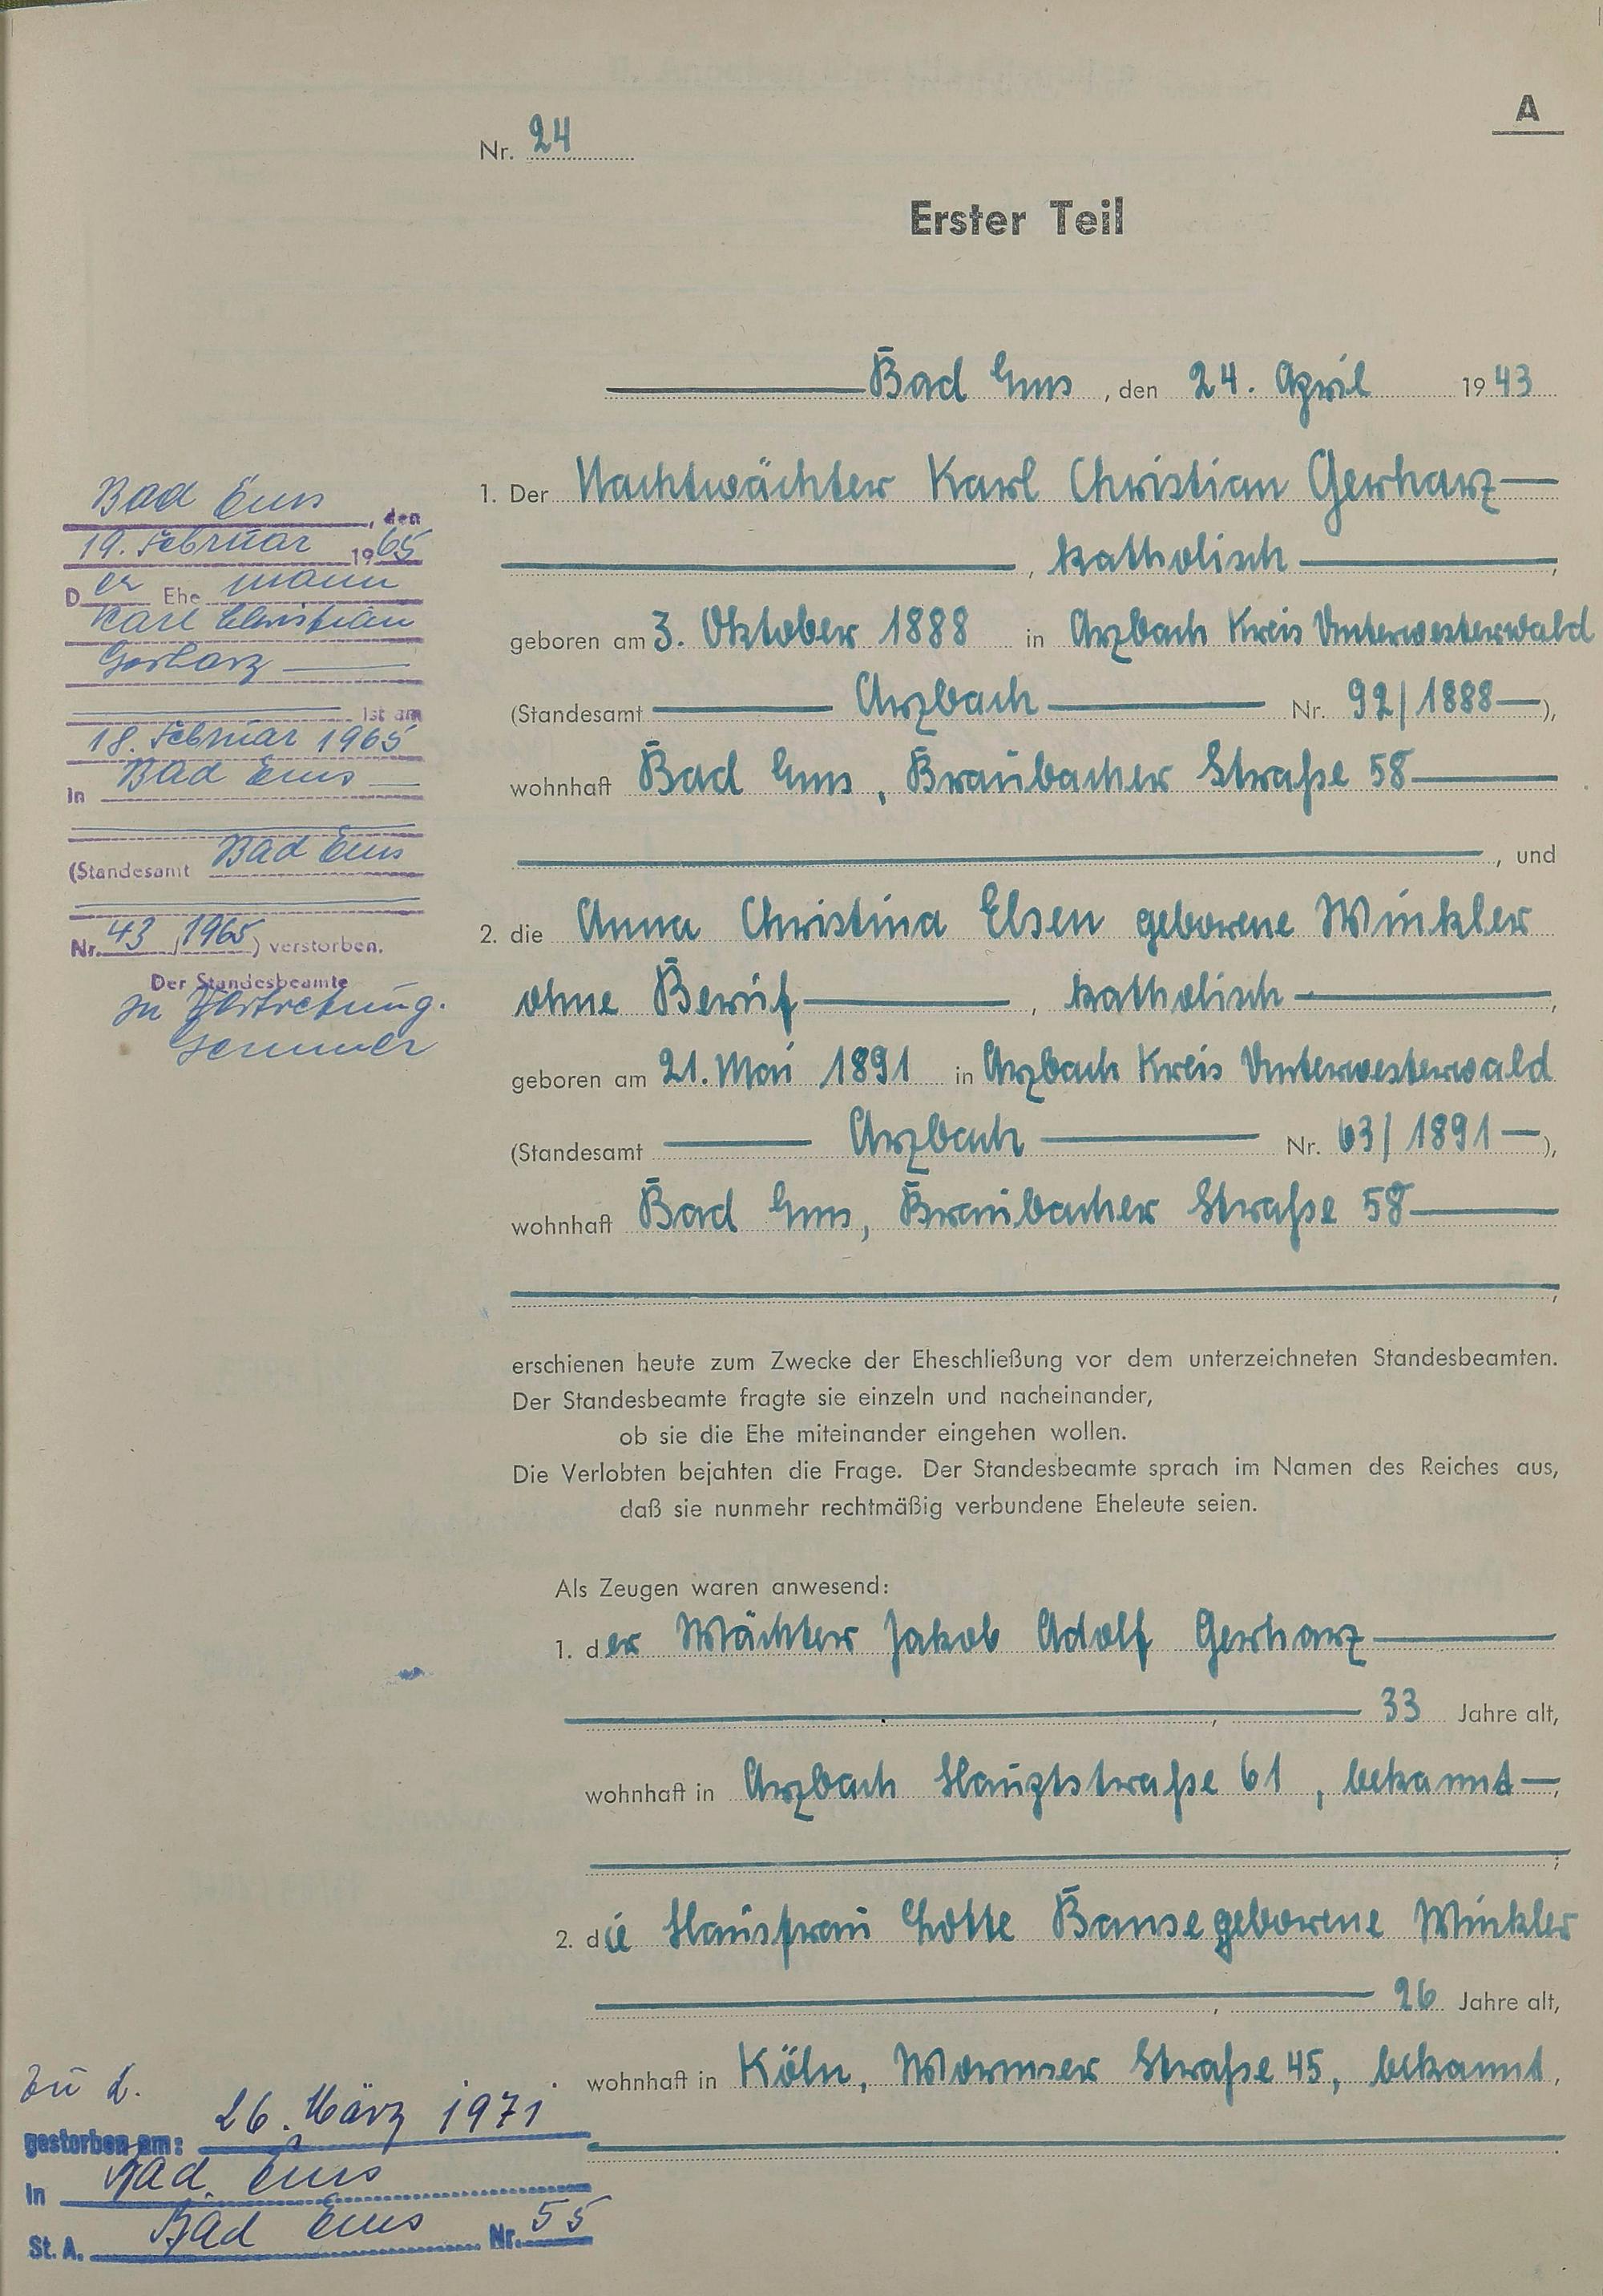 A
Nr. 24
Erster Teil
Bad Ems, den 24. April 1943
1. Der Nachtwächter Karl Christian Gerharz
, katholisch,
geboren am 3. Oktober 1888 in Arzbach Kreis Unterwesterwald
(Standesamt Arzbach Nr. 92/1888),
wohnhaft Bad Ems, Braubacher Straße 58
, und
2. die Anna Christina Elsen geborene Winkler
ohne Beruf, katholisch,
geboren am 21. Mai 1891 in Arzbach Kreis Unterwesterwald
(Standesamt Arzbach Nr. 63/1891),
wohnhaft Bad Ems, Braubacher Straße 58
,
erschienen heute zum Zwecke der Eheschließung vor dem unterzeichneten Standesbeamten.
Der Standesbeamte fragte sie einzeln und nacheinander,
ob sie die Ehe miteinander eingehen wollen.
Die Verlobten bejahten die Frage. Der Standesbeamte sprach im Namen des Reiches aus,
daß sie nunmehr rechtmäßig verbundene Eheleute seien.
Als Zeugen waren anwesend:
1. der Wächter Jakob Adolf Gerharz
, 33 Jahre alt,
wohnhaft in Arzbach Hauptstraße 61, bekannt,
;
2. die Hausfrau Lotte Banse geborene Winkler
, 26 Jahre alt,
wohnhaft in Köln, Wormser Straße 45, bekannt,
.
Bad Ems, den
19. Februar 1965
Der Ehemann
Karl Christian
Gerharz
ist am
18. Februar 1965
in Bad Ems
(Standesamt Bad Ems
Nr. 43/1965) verstorben.
Der Standesbeamte
In Vertretung.
Zu 2.
gestorben am: 26. März 1971
in Bad Ems
St. A. Bad Ems Nr. 55